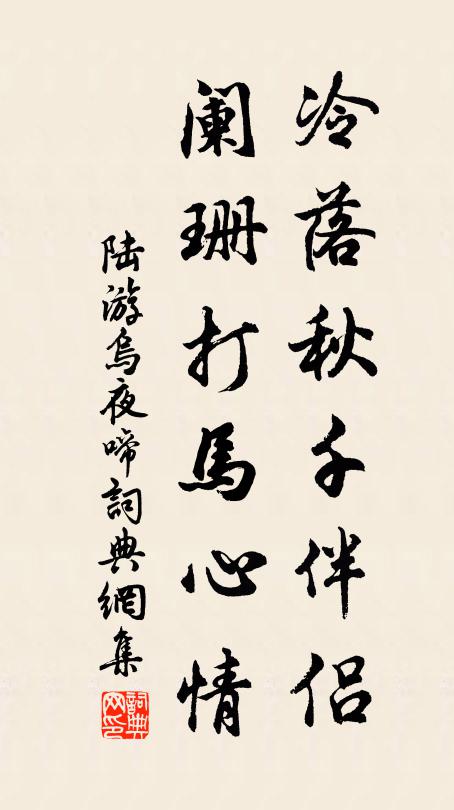 冷落秋千伴侣
阑珊打馬心情
陆游烏夜啼詞典網集
詞典
网印